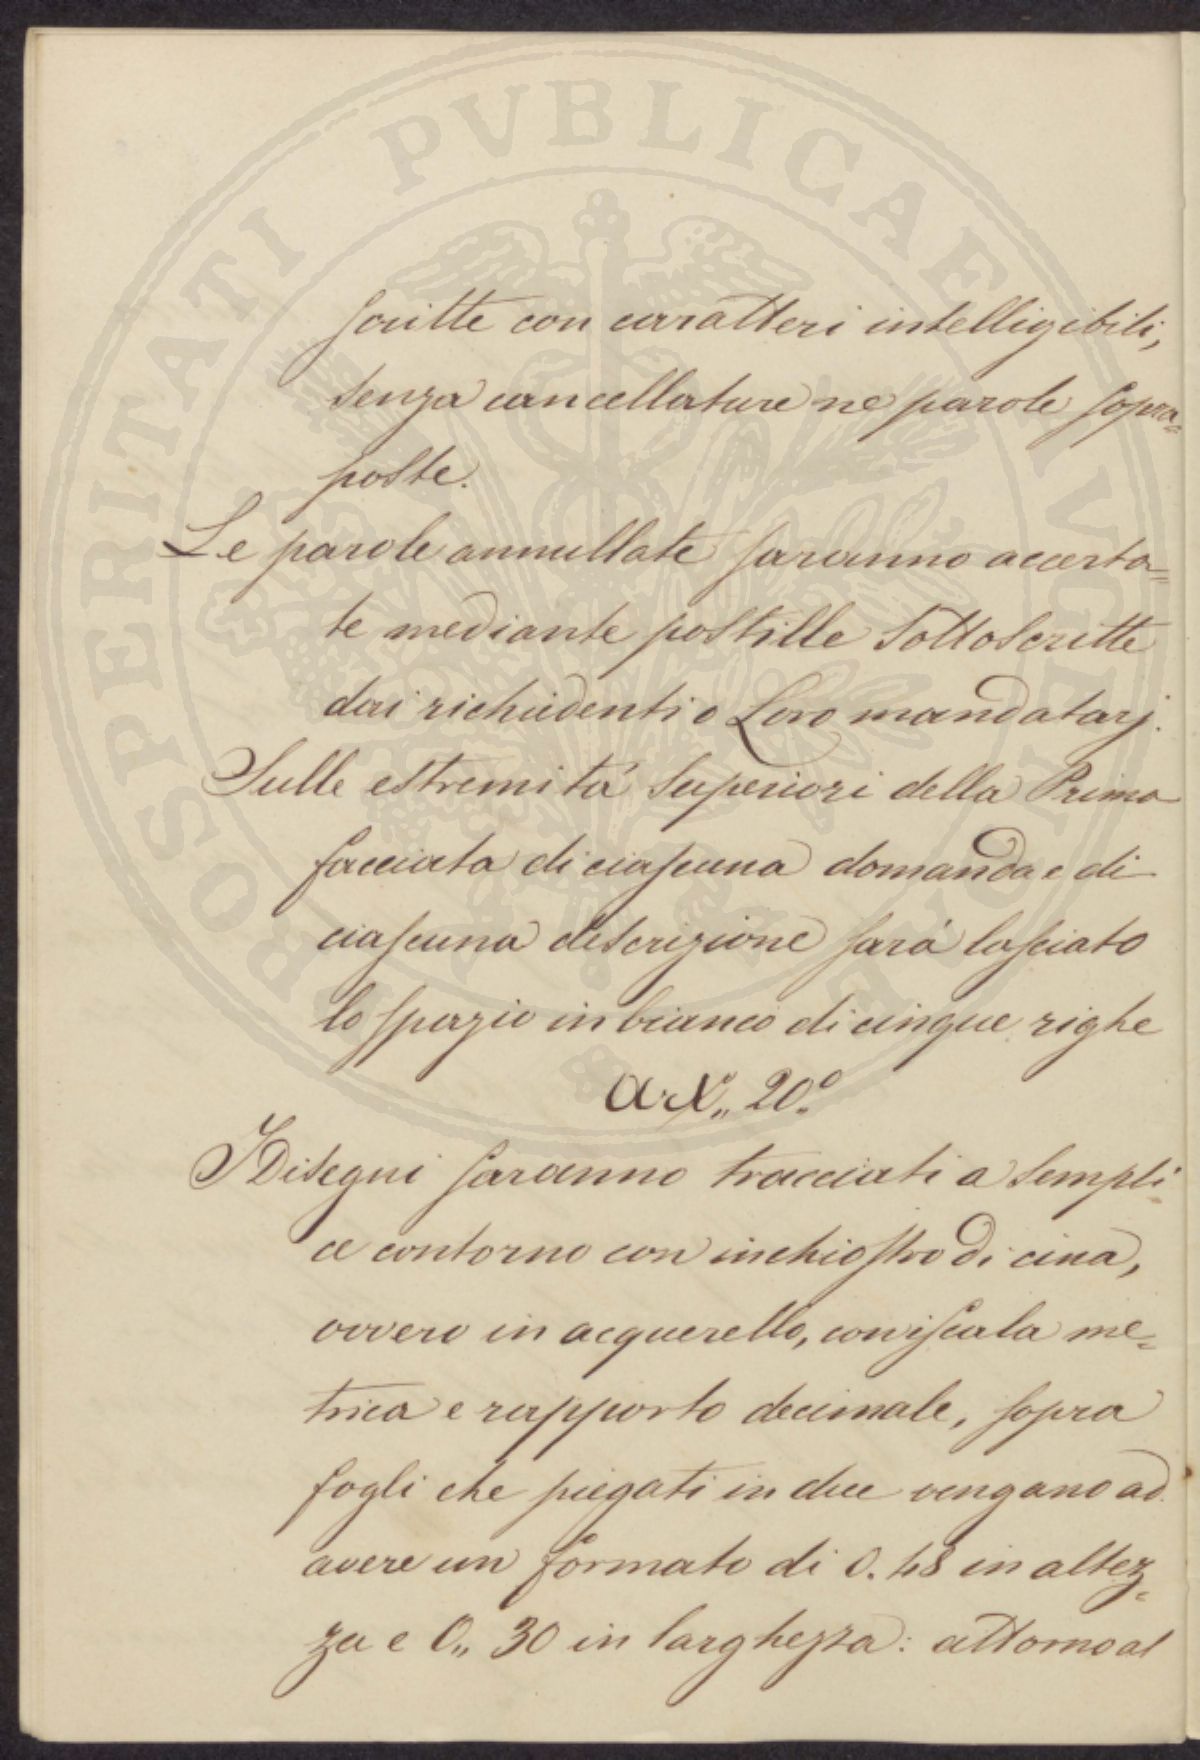 PROSPERITATI PVBLICAE AVGENDAE
scritte con caratteri intelligibili,
senza cancellature ne parole sopra=
poste.
Le parole annullate saranno accerta=
te mediante postille sottoscritte
dai richiedenti o Loro mandatarj.
Sulle estremitá superiori della Prima
facciata di ciascuna domanda e di
ciascuna descrizione sará lasciato
lo spazio in bianco di cinque righe
Art,, 20.°
I Disegni saranno tracciati a sempli
ce contorno con inchiostro di cina,
ovvero in acquerello, con iscala me=
trica e rapporto decimale, sopra
fogli che piegati in due vengano ad
avere un formato di 0. 48 in altez=
za e 0,, 30 in larghezza: attorno al